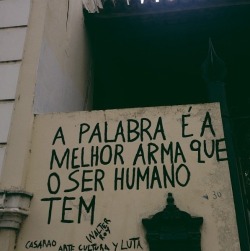 A PALABRA É A
MELHOR ARMA QUE
O SER HUMANO
TEM
WALTER
CASARAO ARTE CULTURA Y LUTA